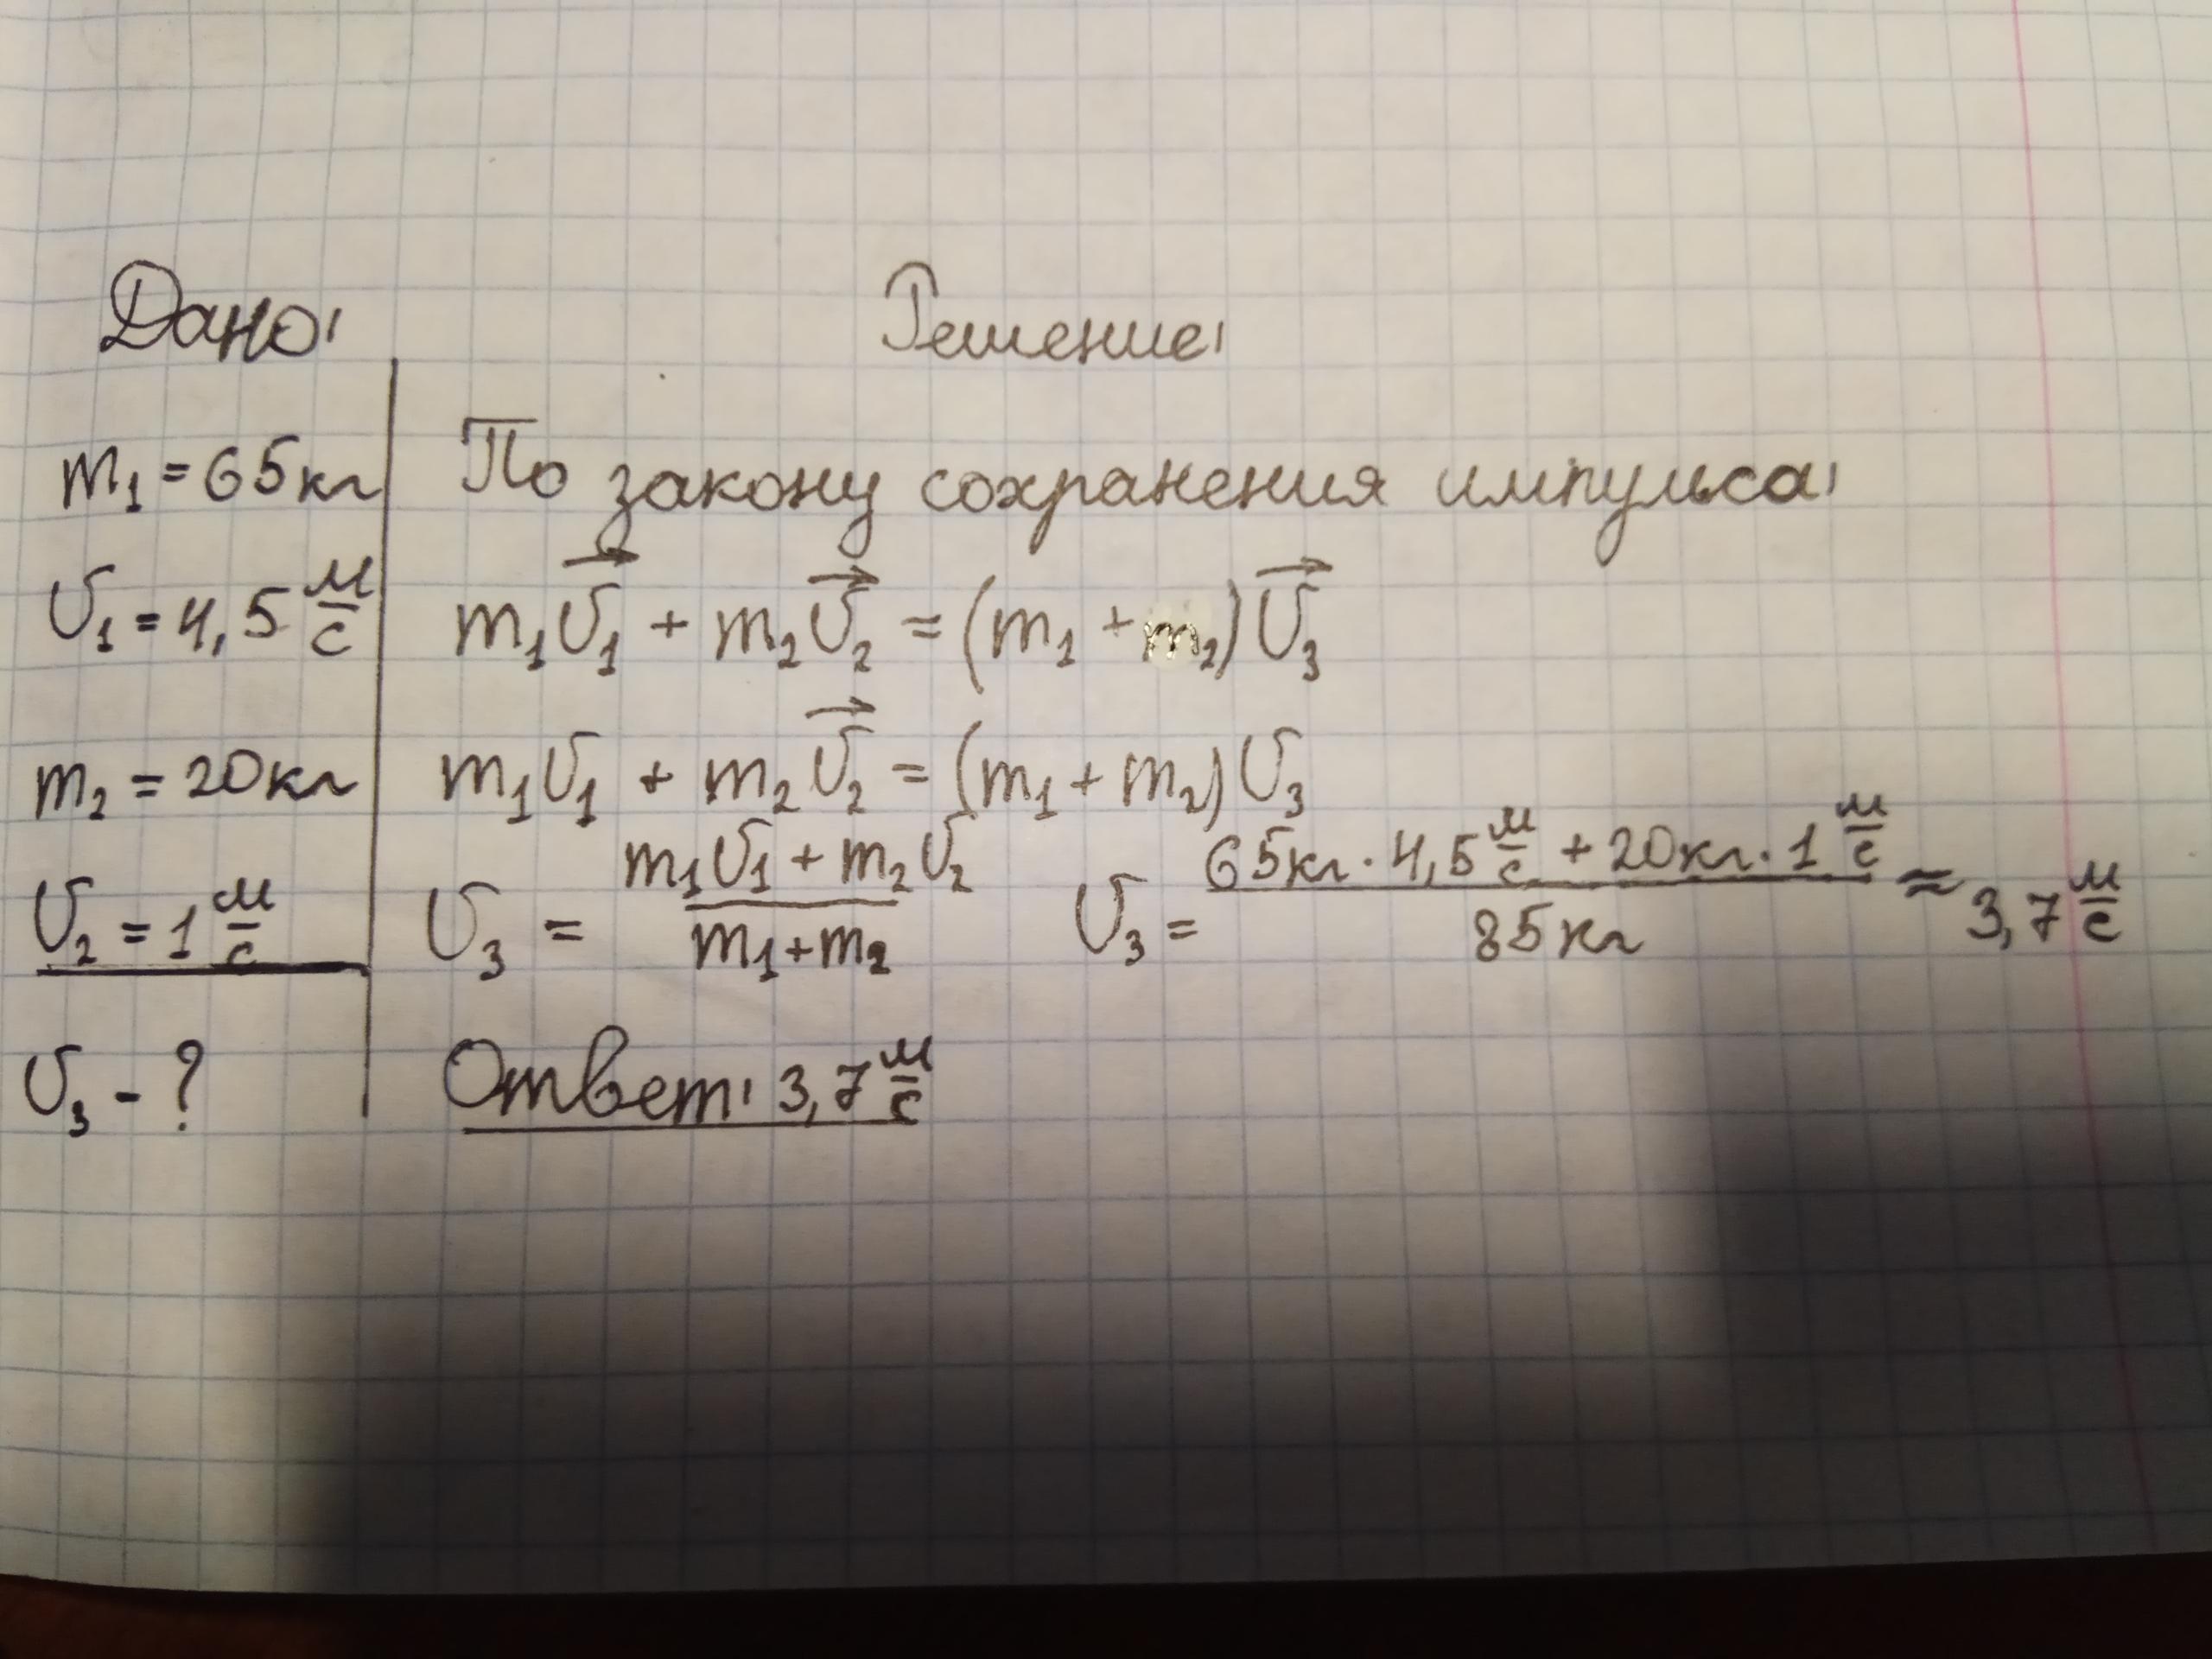 Дано:
m₁ = 65 кг
υ₁ = 4,5 м/с
m₂ = 20 кг
υ₂ = 1 м/с
υ₃ - ?
Решение:
По закону сохранения импульса:
m₁υ⃗₁ + m₂υ⃗₂ = (m₁ + m₂)υ⃗₃
m₁υ₁ + m₂υ⃗₂ = (m₁ + m₂)υ₃
υ₃ = (m₁υ₁ + m₂υ₂)/(m₁+m₂) υ₃ = (65кг · 4,5 м/с + 20кг · 1 м/с)/(85 кг) ≈ 3,7 м/с
Ответ: 3,7 м/с